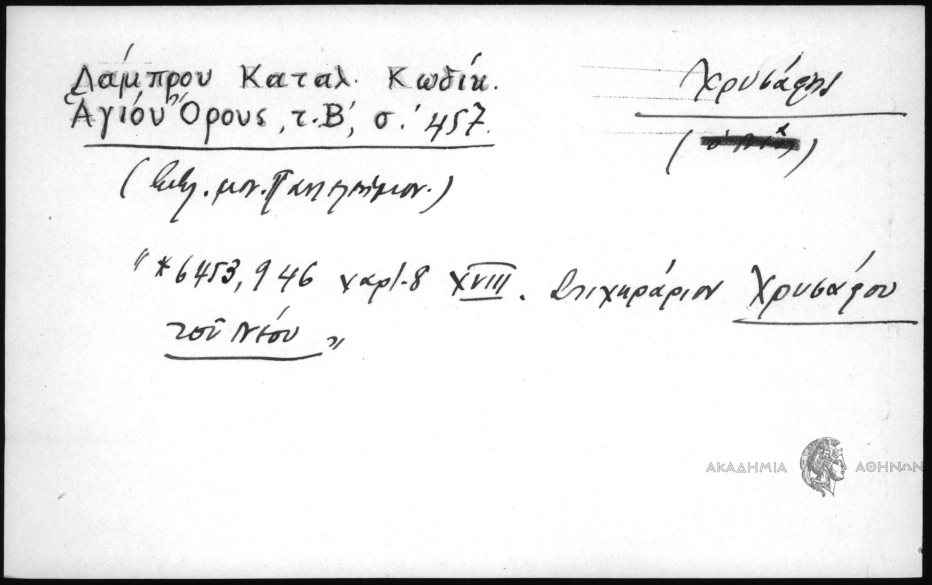 Λάμπρου Καταλ. Κωδίκ.
Ἁγίου Ὄρους, τ. Β', σ. 457.
Χρυσάφης
(ὁ Νέος)
(Βιβλ. μον. Παντελεήμον.)
"*6453, 946 χαρτ. 8 XVIII. Στιχηράριον Χρυσάφου
τοῦ Νέου"
ΑΚΑΔΗΜΙΑ ΑΘΗΝΩΝ